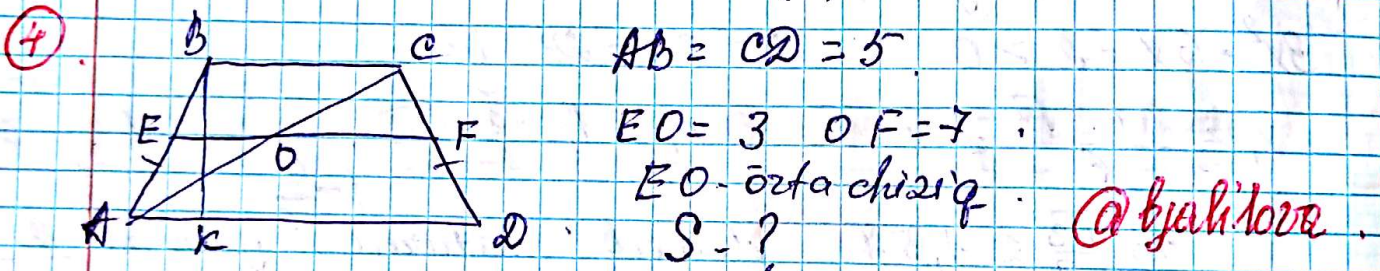 4.
B C
E O F
A K D
AB = CD = 5.
EO = 3 OF = 7.
EO - o'rta chiziq.
S - ?
@bjalilova.